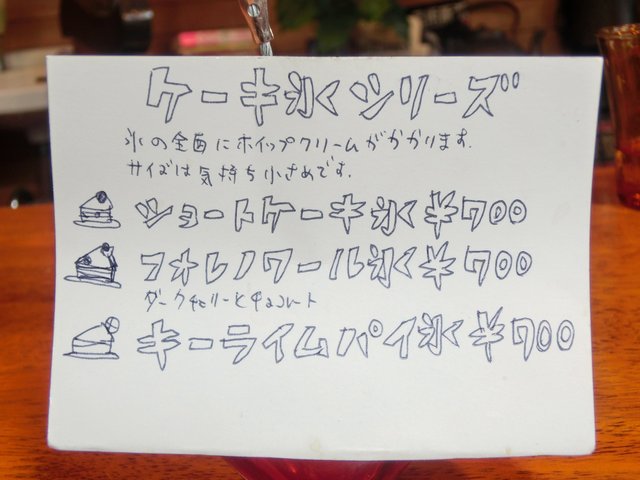 ケーキ氷シリーズ
氷の全面にホイップクリームがかかります.
サイズは気持ち小さめです.
ショートケーキ氷 ¥700
フォレノワール氷 ¥700
ダークチェリーとチョコレート
キーライムパイ氷 ¥700